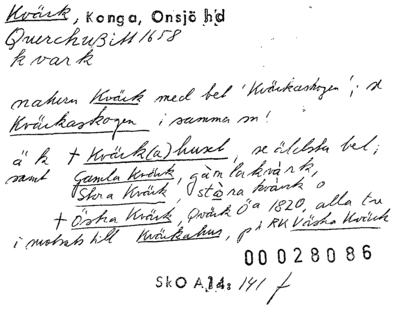 Kvärk, Konga, Onsjö hd
Querchußitt 1658
kvark
naturn Kvärk med bet 'Kvärkaskogen'; se
Kvärkaskogen i samma sn!
äk † Kvärk(a)huset, se äldsta bel;
samt Gamla Kvärk, gàmlakvàrk,
Stora Kvärk, stòra kvàrk o
† Östra Kvärk, Qvärk Öa 1820, alla tre
i motsats till Kvärkahus, på RK Västra Kvärk
00028086
SkO A14: 141 f